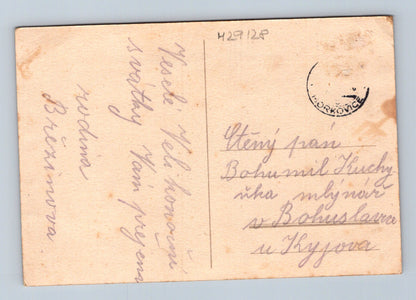 Veselé Velikonoční
svátky Vám přejem
rodina
Březinova
H29128
HORKOVICE
Ctěný pán
Bohumil Kuchy
ňka mlynář
v Bohuslavi
u Kyjova